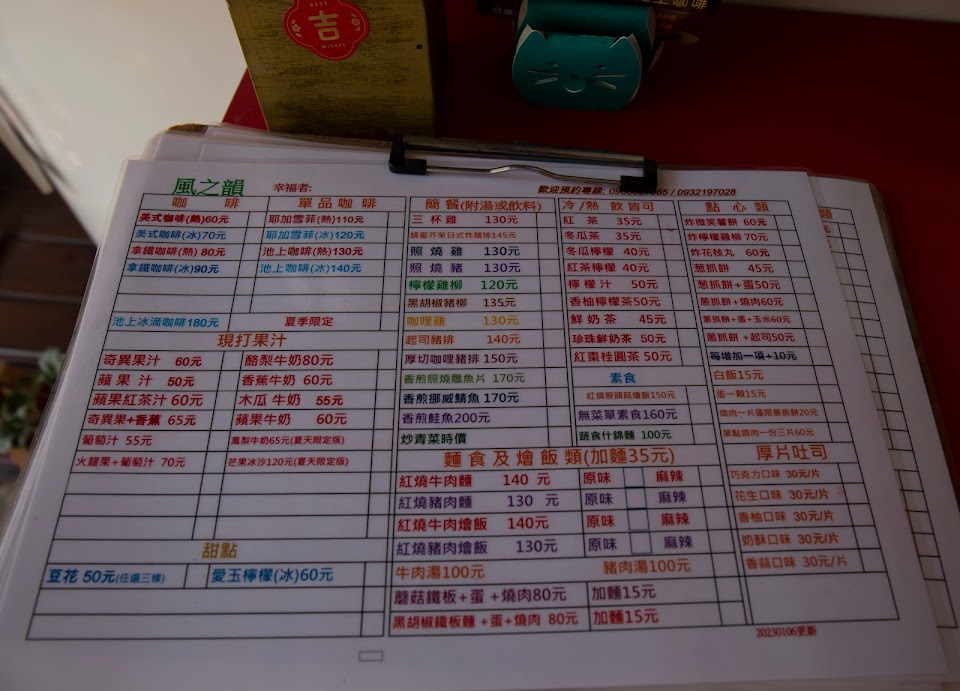 BEST
吉
WISHES
風之韻
幸福者:
歡迎預約專線: / 0932197028
咖啡
美式咖啡(熱)60元
美式咖啡(冰)70元
拿鐵咖啡(熱) 80元
拿鐵咖啡(冰)90元
池上冰滴咖啡180元
單品咖啡
耶加雪菲(熱)110元
耶加雪菲(冰)120元
池上咖啡(熱)130元
池上咖啡(冰)140元
夏季限定
現打果汁
奇異果汁 60元
蘋果汁 50元
蘋果紅茶汁60元
奇異果+香蕉 65元
葡萄汁 55元
火龍果+葡萄汁 70元
酪梨牛奶80元
香蕉牛奶 60元
木瓜牛奶 55元
蘋果牛奶 60元
鳳梨牛奶65元(夏天限定版)
芒果冰沙120元(夏天限定版)
甜點
豆花 50元(任選三樣)
愛玉檸檬(冰)60元
簡餐(附湯或飲料)
三杯雞 130元
蜂蜜芥茉日式炸豬排145元
照燒雞 130元
照燒豬 130元
檸檬雞柳 120元
黑胡椒豬柳 135元
咖哩雞 130元
起司豬排 140元
厚切咖哩豬排 150元
香煎照燒鵰魚片 170元
香煎挪威鯖魚 170元
香煎鮭魚200元
炒青菜時價
冷/熱 飲皆可
紅茶 35元
冬瓜茶 35元
冬瓜檸檬 40元
紅茶檸檬 40元
檸檬汁 50元
香柚檸檬茶50元
鮮奶茶 45元
珍珠鮮奶茶 50元
紅棗桂圓茶 50元
素食
紅燒猴頭菇燴飯150元
無菜單素食160元
蔬食什錦麵 100元
點心類
炸微笑薯餅 60元
炸檸檬雞柳 70元
炸花枝丸 60元
蔥抓餅 45元
蔥抓餅+蛋50元
蔥抓餅+燒肉60元
蔥抓餅+蛋+玉米60元
蔥抓餅 +起司50元
每增加一項+10元
白飯15元
蛋一顆15元
燒肉一片僅限蔥抓餅20元
單點燒肉一份三片60元
麵食及燴飯類(加麵35元)
紅燒牛肉麵 140 元 原味 麻辣
紅燒豬肉麵 130 元 原味 麻辣
紅燒牛肉燴飯 140元 原味 麻辣
紅燒豬肉燴飯 130元 原味 麻辣
牛肉湯100元 豬肉湯100元
蘑菇鐵板+蛋 +燒肉80元 加麵15元
黑胡椒鐵板麵 +蛋+燒肉 80元 加麵15元
厚片吐司
巧克力口味 30元/片
花生口味 30元/片
香柚口味 30元/片
奶酥口味 30元/片
香蒜口味 30元/片
20230106更新